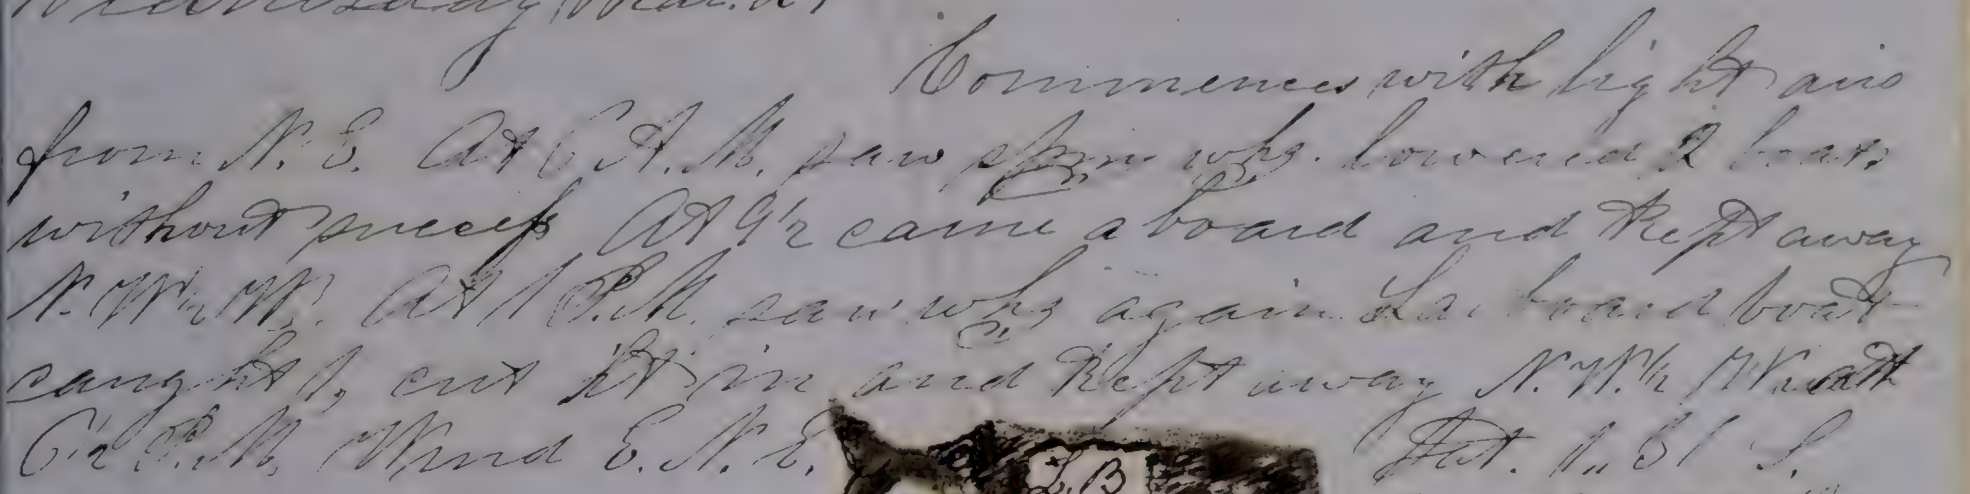 Wednesday Mar. 21
Commences with light airs
from N. E. At 6 A. M. saw spm whs. lowered 2 boats
without success At 9½ came aboard and Kept away
N. W ½ W. At 1 P. M. saw whs again Larboard boat
caught 1, cut it in and Kept away N. W. ½ W. at
6½ P. M. Wind E. N. E.
L. B Lat. 1. 31 S.